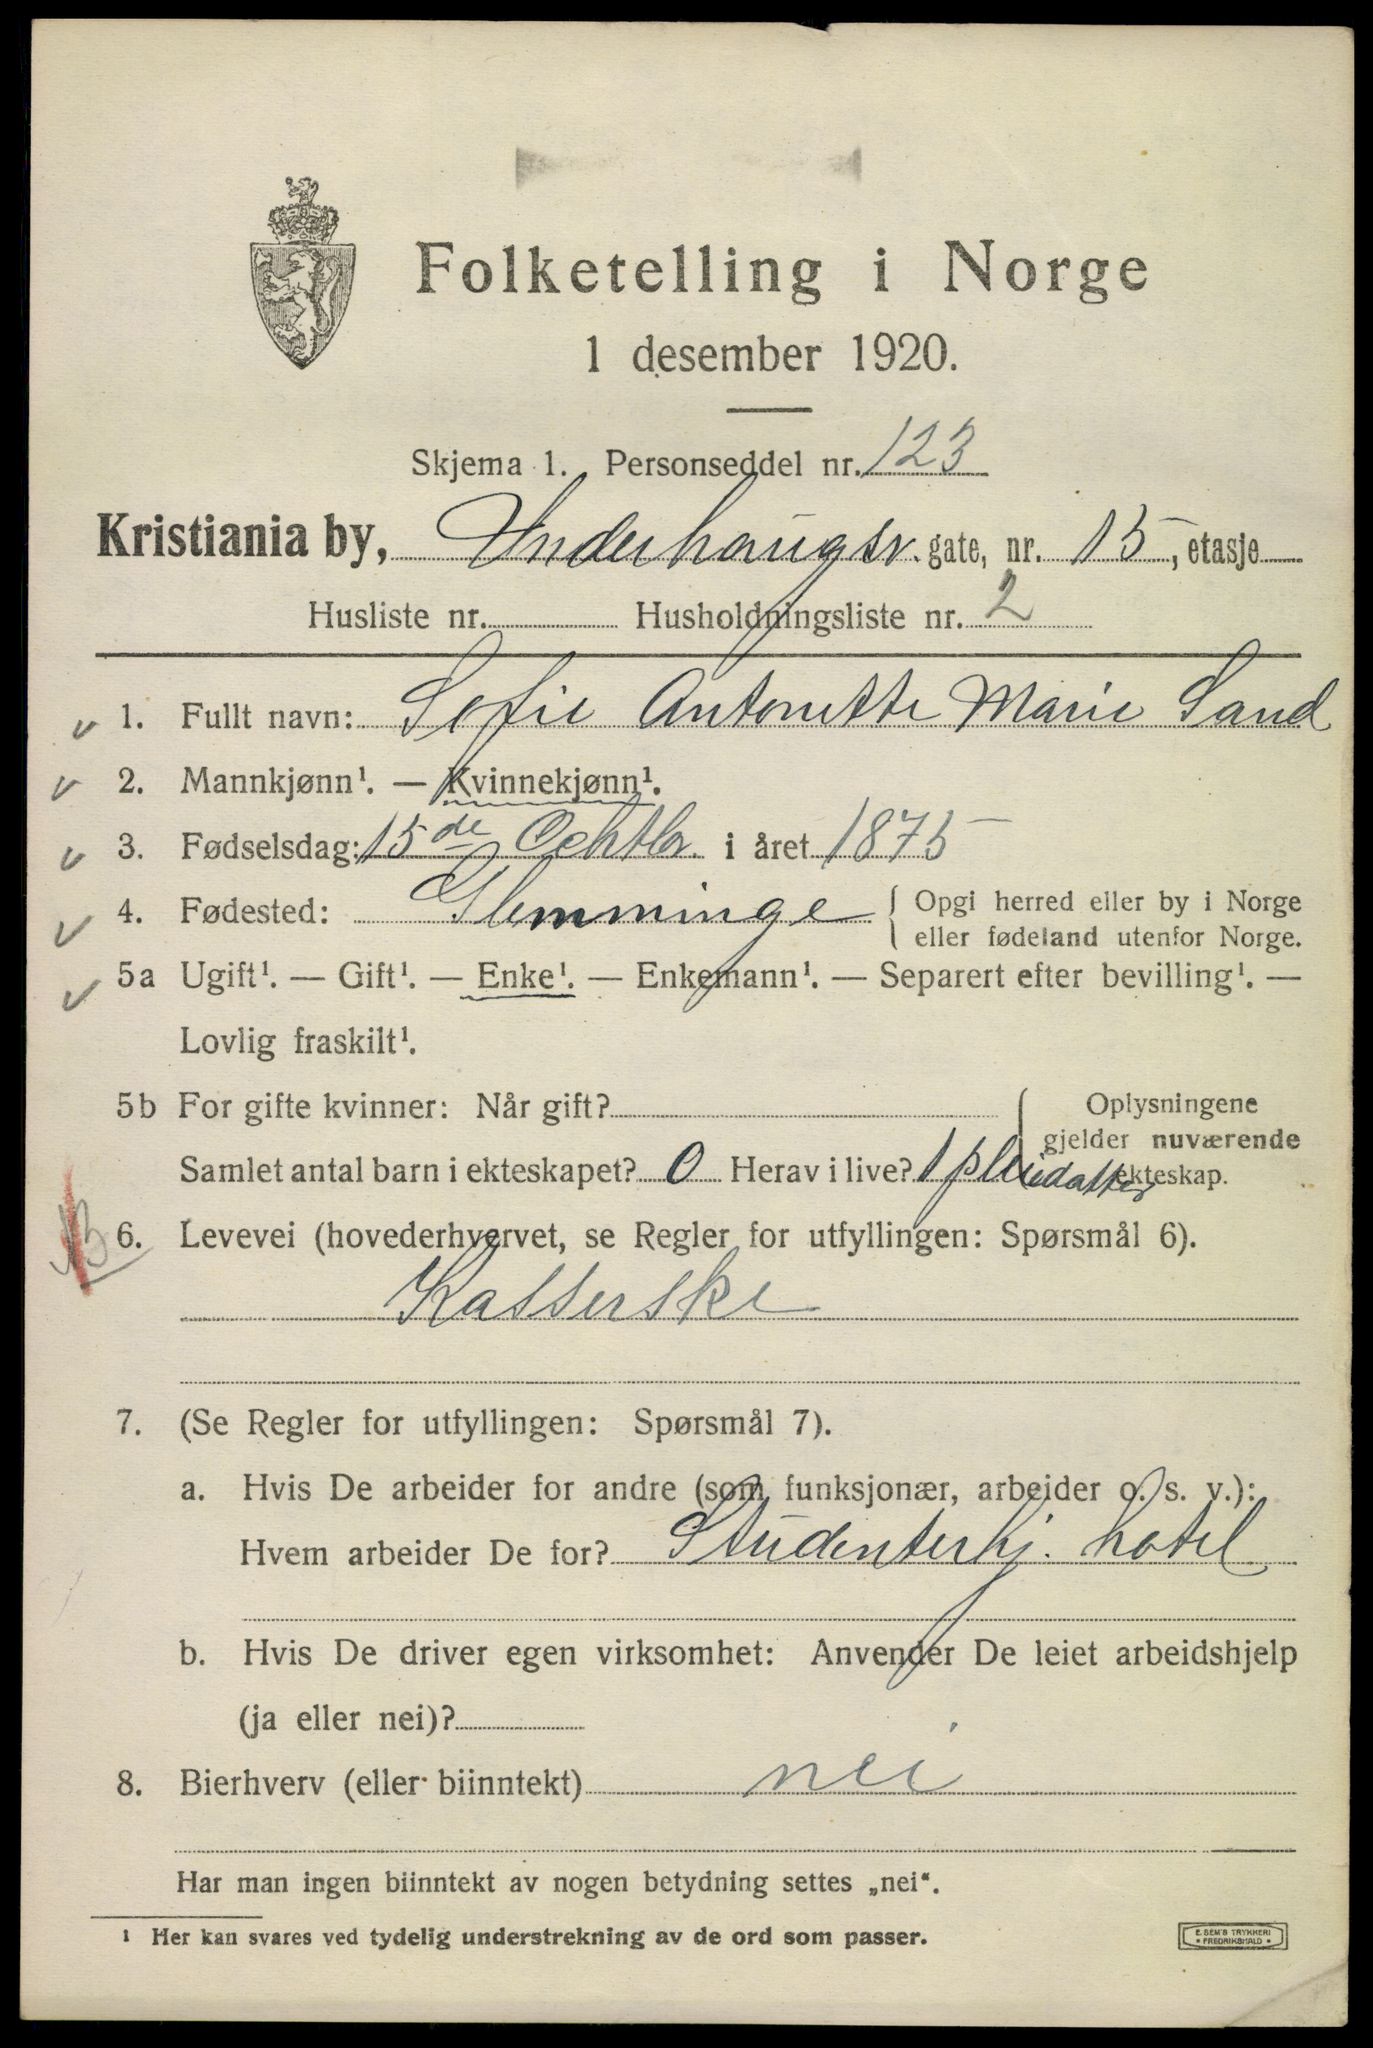 Folketelling i Norge
1 desember 1920.
Skjema 1. Personseddel nr. 123
Kristiania by, Underhaugsv. gate, nr. 15, etasje
Husliste nr. Husholdningsliste nr. 2
1. Fullt navn: Sofie Antonette Marie Sand
2. Mannkjønn¹. — Kvinnekjønn¹.
3. Fødselsdag: 15de Ochtbr. i året 1875
4. Fødested: Glemminge { Opgi herred eller by i Norge
eller fødeland utenfor Norge.
5a Ugift¹. — Gift¹. — Enke¹. — Enkemann¹. — Separert efter bevilling¹. —
Lovlig fraskilt¹.
5b For gifte kvinner: Når gift? { Oplysningene
gjelder nuværende
Samlet antal barn i ekteskapet? 0 Herav i live? 1 pleiedatter ekteskap.
NB 6. Levevei (hovederhvervet, se Regler for utfyllingen: Spørsmål 6).
Kasserske
7. (Se Regler for utfyllingen: Spørsmål 7).
a. Hvis De arbeider for andre (som funksjonær, arbeider o. s. v.):
Hvem arbeider De for? Studenterhj. hotel
b. Hvis De driver egen virksomhet: Anvender De leiet arbeidshjelp
(ja eller nei)?
8. Bierhverv (eller biinntekt) nei
Har man ingen biinntekt av nogen betydning settes „nei“.
¹ Her kan svares ved tydelig understrekning av de ord som passer.
E. SEM'S TRYKKERI
* FREDRIKSHALD *